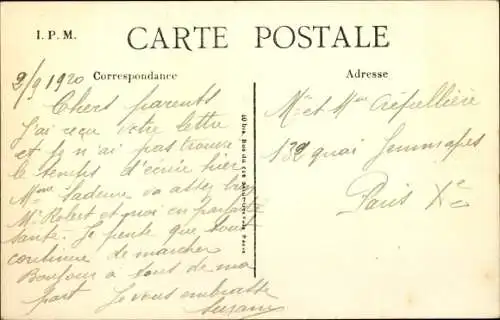 I. P. M.
CARTE POSTALE
Correspondance
Adresse
2/9 1920
Chers parents
J'ai reçu votre lettre
et je n'ai pas trouvé
le temps d'écrire hier
Mme va assez bien
Mr Robert et moi en parfaite
santé. Je pense que tout
continue de marcher
Bonjour à tous de ma
part Je vous embrasse
Suzanne
Mr et Mme Crépellière
132 quai Jemmapes
Paris Xe